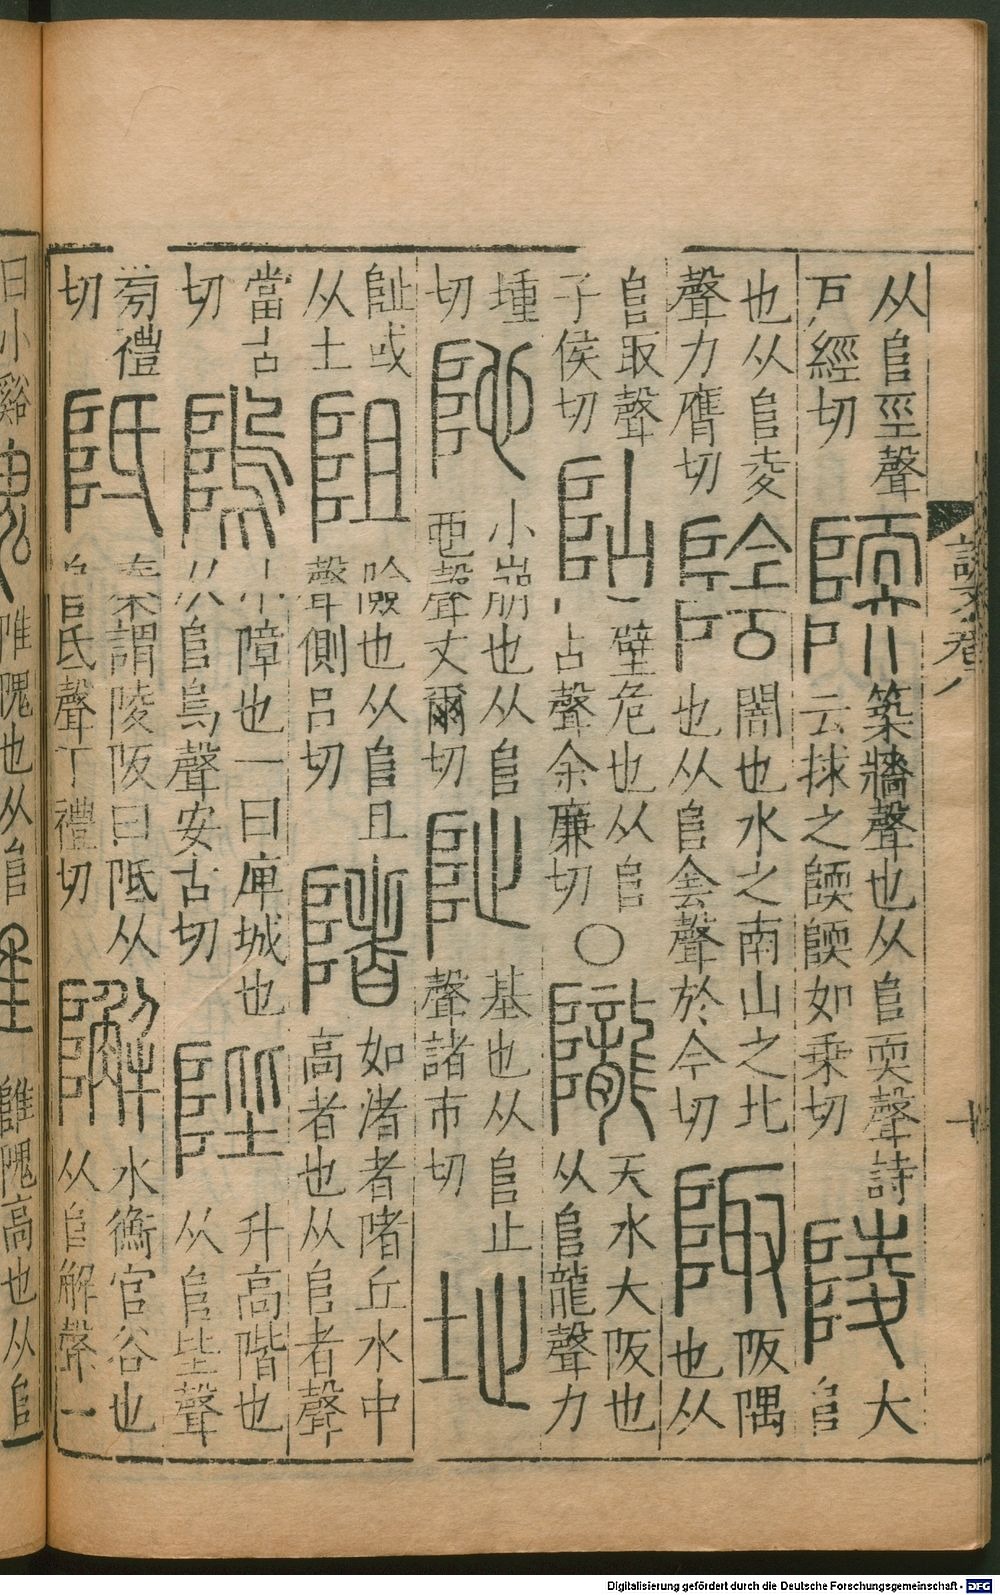 从𨸏巠聲
戸經切
陾
築牆聲也从𨸏耎聲詩
云捄之陾陾如乗切
陵
大
𨸏
也从𨸏夌
聲力膺切
陰
闇也水之南山之北
也从𨸏侌聲於今切
陬
阪隅
也从
𨸏取聲
子侯切
阽
壁危也从𨸏
占聲余廉切
○
隴
天水大阪也
从𨸏龍聲力
切
阤
小崩也从𨸏
聲丈爾切
阯
基也从𨸏止
聲諸市切
址
阯或
从土
阻
險也从𨸏且
聲側呂切
陼
如渚者陼丘水中
高者也从𨸏者聲
當古
切
隖
小障也一曰庳城也
从𨸏烏聲安古切
陛
升高階也
从𨸏坒聲
㫄禮
切
阺
秦謂陵阪曰阺从
𨸏氐聲丁禮切
水衡官谷也
从𨸏解聲一
說文卷八
曰小谿
陮隗也从𨸏
陮隗高也从𨸏
Digitalisierung gefördert durch die Deutsche Forschungsgemeinschaft - DFG